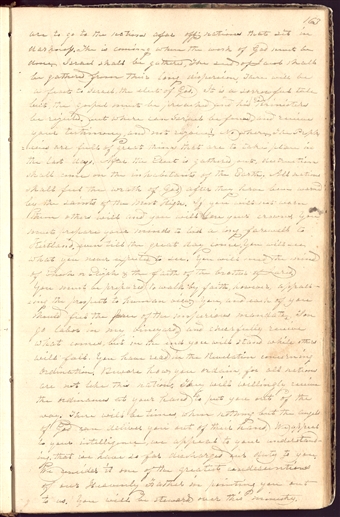 163
are to go to the nations afar off, nations that sit in
darkness. The is coming when the work of God must be
done. Israel shall be gathered, The seed of Jacob shall
be gathered from their long dispersion, There will be
a feast to Israel the elect of God. It is a sorrowful tale
but the Gospel must be preached and his ministers
be rejected, but where can Israel be found and receive
your testimony, and not rejoice, No where, The Proph
ecies are full of great things that are to take place in
the last days. After the Elect is gathered out, destruction
shall come on the inhabitants of the Earth, All nations
shall feel the wrath of God after they have been warned
by the saints of the Most High. If you will not warn
them others will and you will lose your crowns. You
must prepare your minds to bid a long farewell to
Kirtland, even till the great day come. You will see
what you never expected to see, You will need the mind
of Enoch or Elijah & the faith of the brother of Jared
You must be prepared to walk by faith however appear
ing the prospect to human view, you, and each of you
should feel the force of the imperious mandate, Son
go labor in my vineyard, and cheerfully receive
what comes, but in the end you will stand while others
will fall. You have read in the Revelation concerning
ordination, Beware how you ordain, for all nations
are not like this nation, They will willingly receive
the ordinances at your hand to put you out of the
way. There will be times, when nothing but the angels
of God can deliver you out of their hand. We appeal
to your intelligence, we appeal to your understand-
ing, that we have so far discharged our duty to you,
We consider it one of the greatest condescensions
of our Heavenly Father in pointing you out
to us. You will be stewards over this ministry,